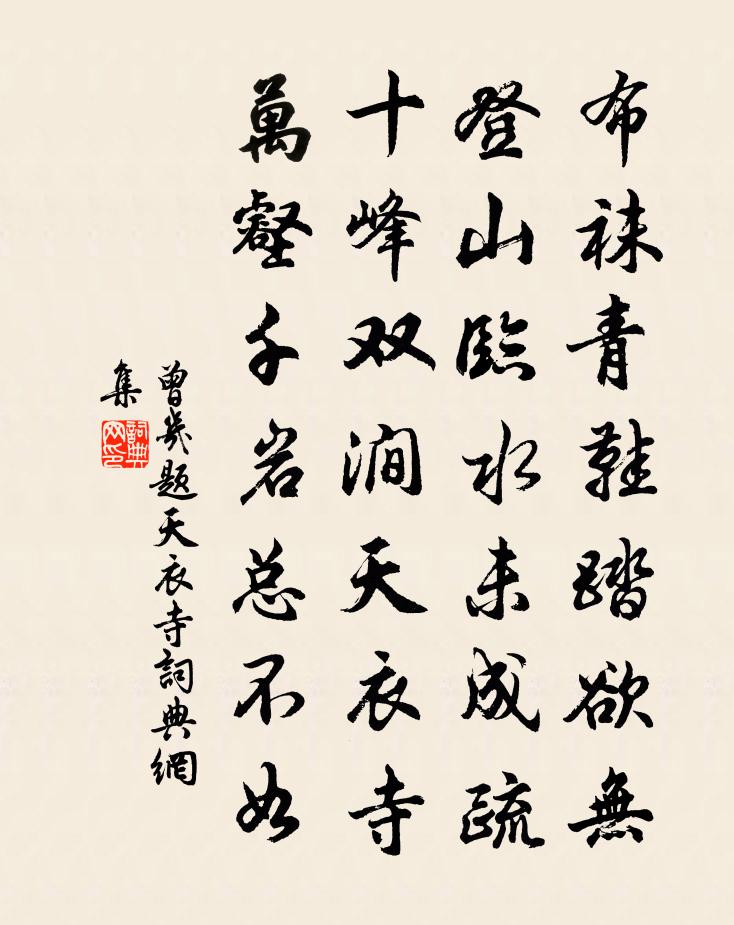 布袜青鞋踏欲無
登山臨水未成疏
十峰双澗天衣寺
萬壑千岩总不如
曾幾題天衣寺詞典網
集
詞典網印